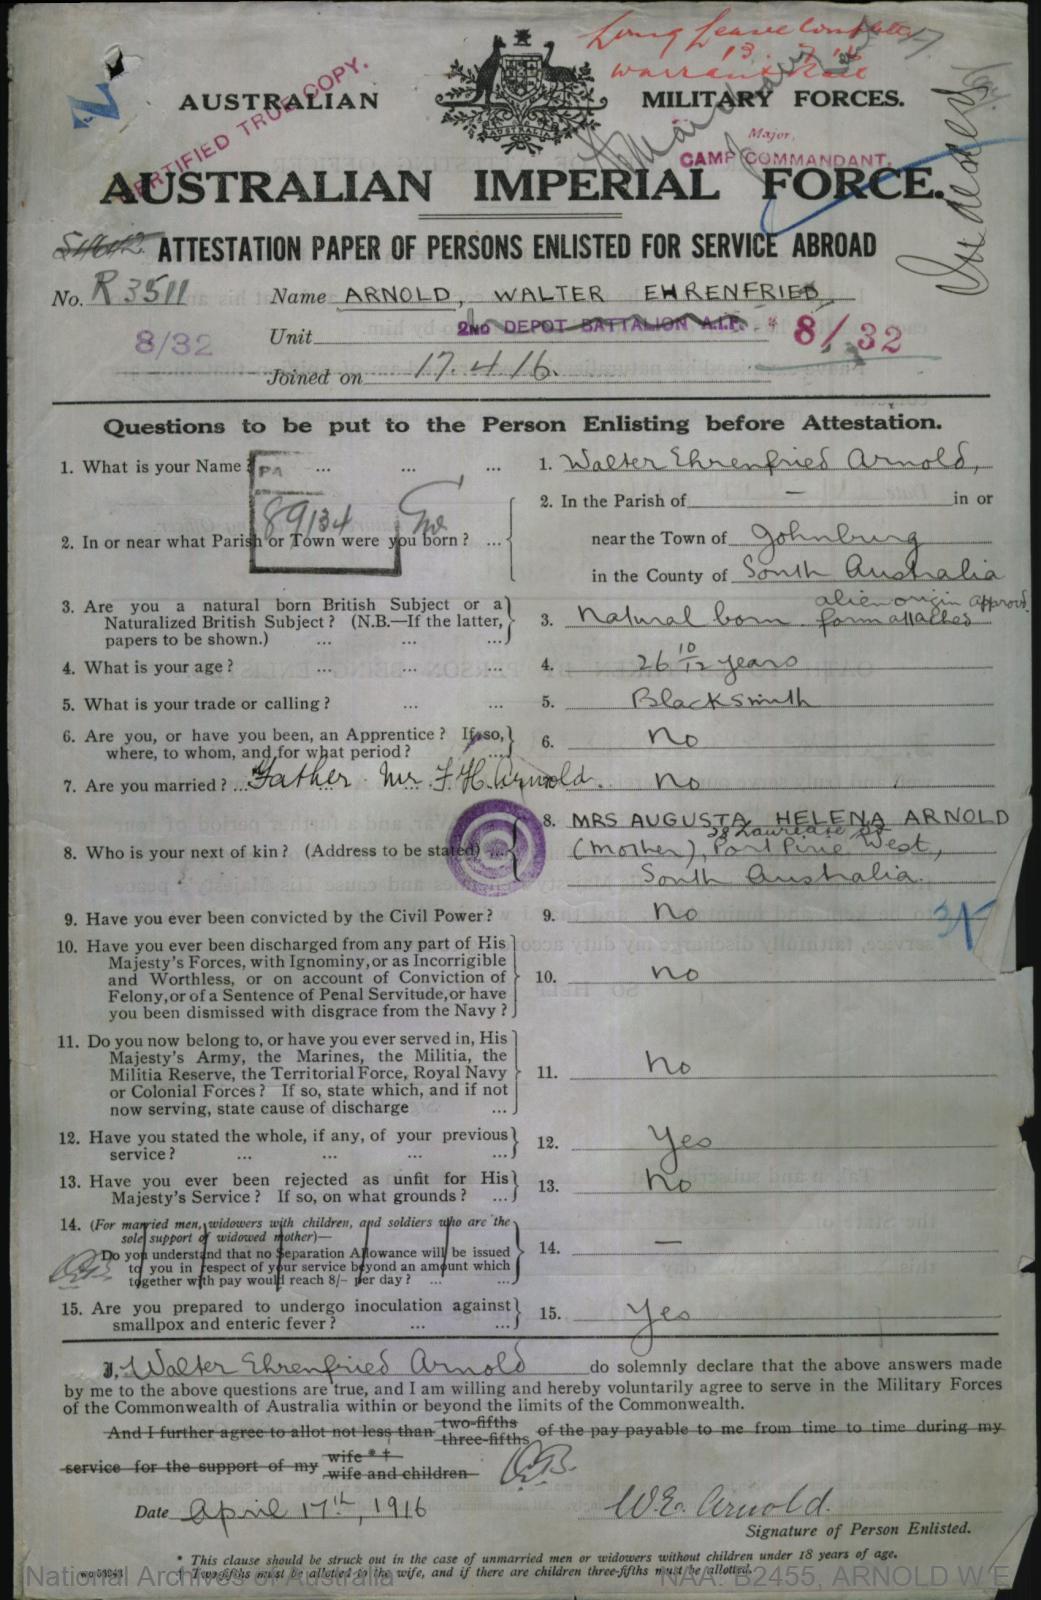 Long Leave
AUSTRALIAN MILITARY FORCES.
AUSTRALIA
CERTIFIED TRUE COPY.
Major,
CAMP COMMANDANT.
AUSTRALIAN IMPERIAL FORCE.
ATTESTATION PAPER OF PERSONS ENLISTED FOR SERVICE ABROAD
No. R 3511 Name ARNOLD, WALTER EHRENFRIED
8/32 Unit 2ND DEPOT BATTALION A.I.F. 8/32
Joined on 17.4.16.
Questions to be put to the Person Enlisting before Attestation.
1. What is your Name? ... ... ... 1. Walter Ehrenfried Arnold,
PA
89134
2. In or near what Parish or Town were you born? ... 2. In the Parish of — in or
near the Town of Johnburg
in the County of South Australia
3. Are you a natural born British Subject or a
Naturalized British Subject? (N.B.—If the latter,
papers to be shown.) ... ... ... 3. Natural born. alien origin approv. form attached
4. What is your age? ... ... ... 4. 26 10/12 years
5. What is your trade or calling? ... ... 5. Blacksmith
6. Are you, or have you been, an Apprentice? If so,
where, to whom, and for what period? ... 6. No
7. Are you married? ... Father Mr F. H. Arnold. No
8. Who is your next of kin? (Address to be stated) ... 8. MRS AUGUSTA HELENA ARNOLD
(Mother), Port Pirie West,
South Australia.
9. Have you ever been convicted by the Civil Power? 9. No
10. Have you ever been discharged from any part of His
Majesty's Forces, with Ignominy, or as Incorrigible
and Worthless, or on account of Conviction of
Felony, or of a Sentence of Penal Servitude, or have
you been dismissed with disgrace from the Navy? 10. No
11. Do you now belong to, or have you ever served in, His
Majesty's Army, the Marines, the Militia, the
Militia Reserve, the Territorial Force, Royal Navy
or Colonial Forces? If so, state which, and if not
now serving, state cause of discharge ... 11. No
12. Have you stated the whole, if any, of your previous
service? ... ... ... ... 12. Yes
13. Have you ever been rejected as unfit for His
Majesty's Service? If so, on what grounds? ... 13. No
14. (For married men, widowers with children, and soldiers who are the
sole support of widowed mother)—
Do you understand that no Separation Allowance will be issued
to you in respect of your service beyond an amount which
together with pay would reach 8/- per day? ... ... 14. —
15. Are you prepared to undergo inoculation against
smallpox and enteric fever? ... ... 15. Yes
I, Walter Ehrenfried Arnold do solemnly declare that the above answers made
by me to the above questions are true, and I am willing and hereby voluntarily agree to serve in the Military Forces
of the Commonwealth of Australia within or beyond the limits of the Commonwealth.
And I further agree to allot not less than two-fifths three-fifths of the pay payable to me from time to time during my
service for the support of my wife * † wife and children
Date April 17th, 1916 W.E. Arnold.
Signature of Person Enlisted.
* This clause should be struck out in the case of unmarried men or widowers without children under 18 years of age.
† Two-fifths must be allotted to the wife, and if there are children three-fifths must be allotted.
National Archives of Australia NAA: B2455, ARNOLD W E